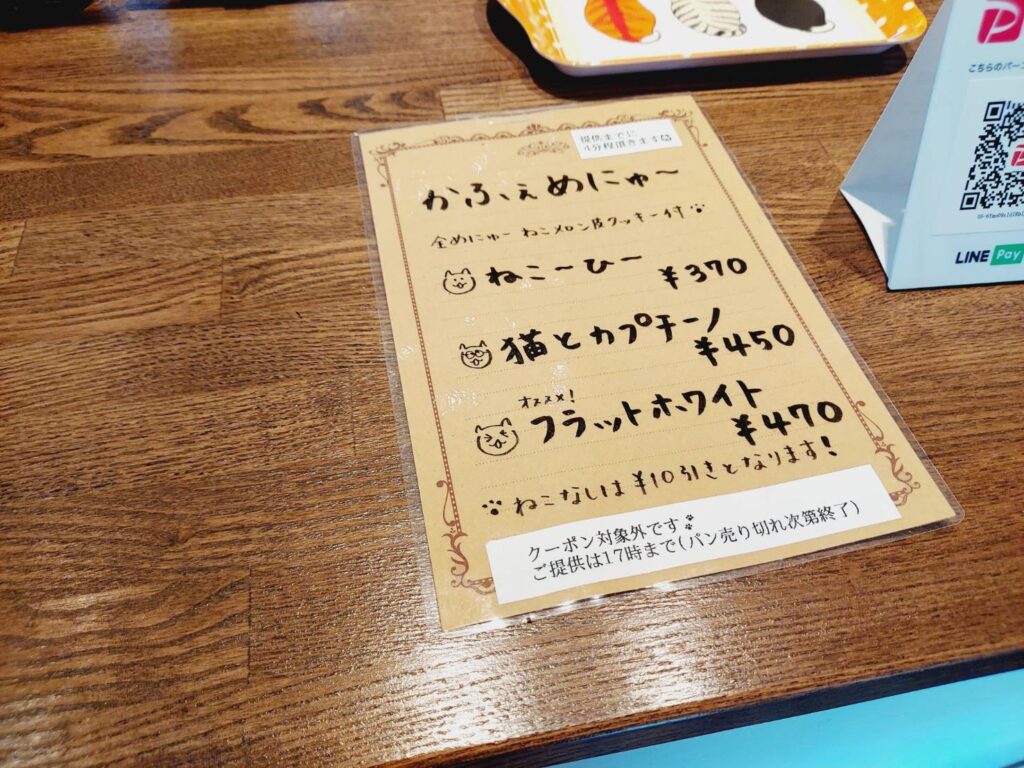 提供までに
4分程頂きます
かふぇめにゅ〜
全めにゅー ねこメロン皮クッキー付
ねこーひー
¥370
猫とカプチーノ
¥450
オススメ!
フラットホワイト
¥470
ねこなしは¥10引きとなります!
クーポン対象外です
ご提供は17時まで(パン売り切れ次第終了)
LINE Pay